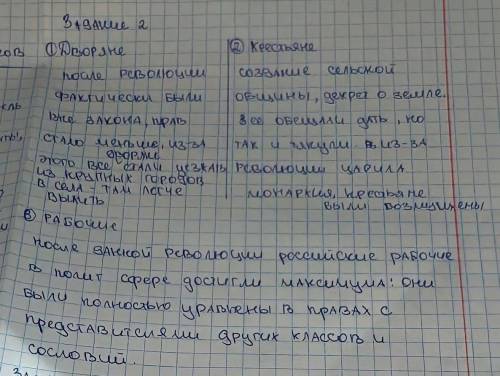 Задание 2
① Дворяне
после революции
фактически были
вне закона, прав
стало меньше, из-за
этого все дворяне стали уезжать
из крупных городов
в села - там легче
выжить
② Крестьяне
создание сельской
общины, декрет о земле.
все обещали дать, но
так и из-за
революции царила
монархия, крестьяне
были возмущены
③ Рабочие
после революции российские рабочие
в полит сфере достигли максимума: они
были полностью уравнены в правах с
представителями других классов и
сословий.